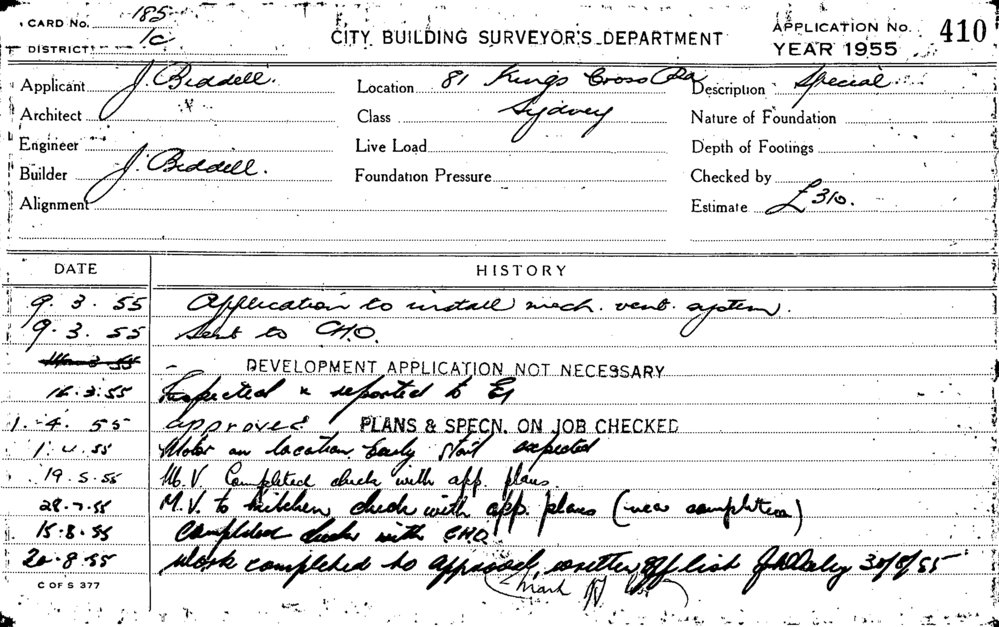 CARD No. 185
DISTRICT 1c
CITY BUILDING SURVEYOR'S DEPARTMENT
APPLICATION No. 410
YEAR 1955
Applicant J. Biddell. Location 81 Kings Cross Rd Description Special
Architect Class Sydney Nature of Foundation
Engineer Live Load Depth of Footings
Builder J. Biddell. Foundation Pressure Checked by
Alignment Estimate £310.
DATE HISTORY
9. 3. 55 Application to install mech. vent. system.
9. 3. 55 Sent to C.H.O.
DEVELOPMENT APPLICATION NOT NECESSARY
16.3.55 Inspected & reported to
1.-4. 55 approved PLANS & SPECN. ON JOB CHECKED
1.4.55 Motor on location Early start expected
19.5.55 M.V. Completed check with app. plans.
28-7-55 M.V. to kitchen check with app. plans (near completion)
15.8.55 Completed check with CHO
20-8-55 Work completed to approval, written off list 30/8/55
C OF S 377 Mark